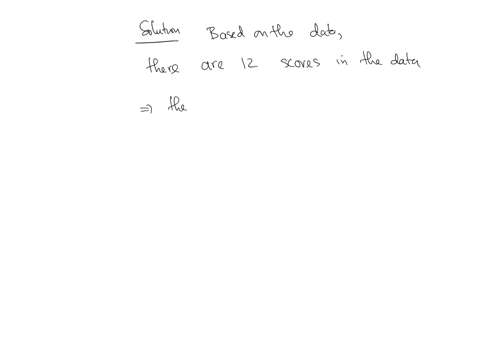 Solution Based on the data,
there are 12 scores in the data
⇒ the